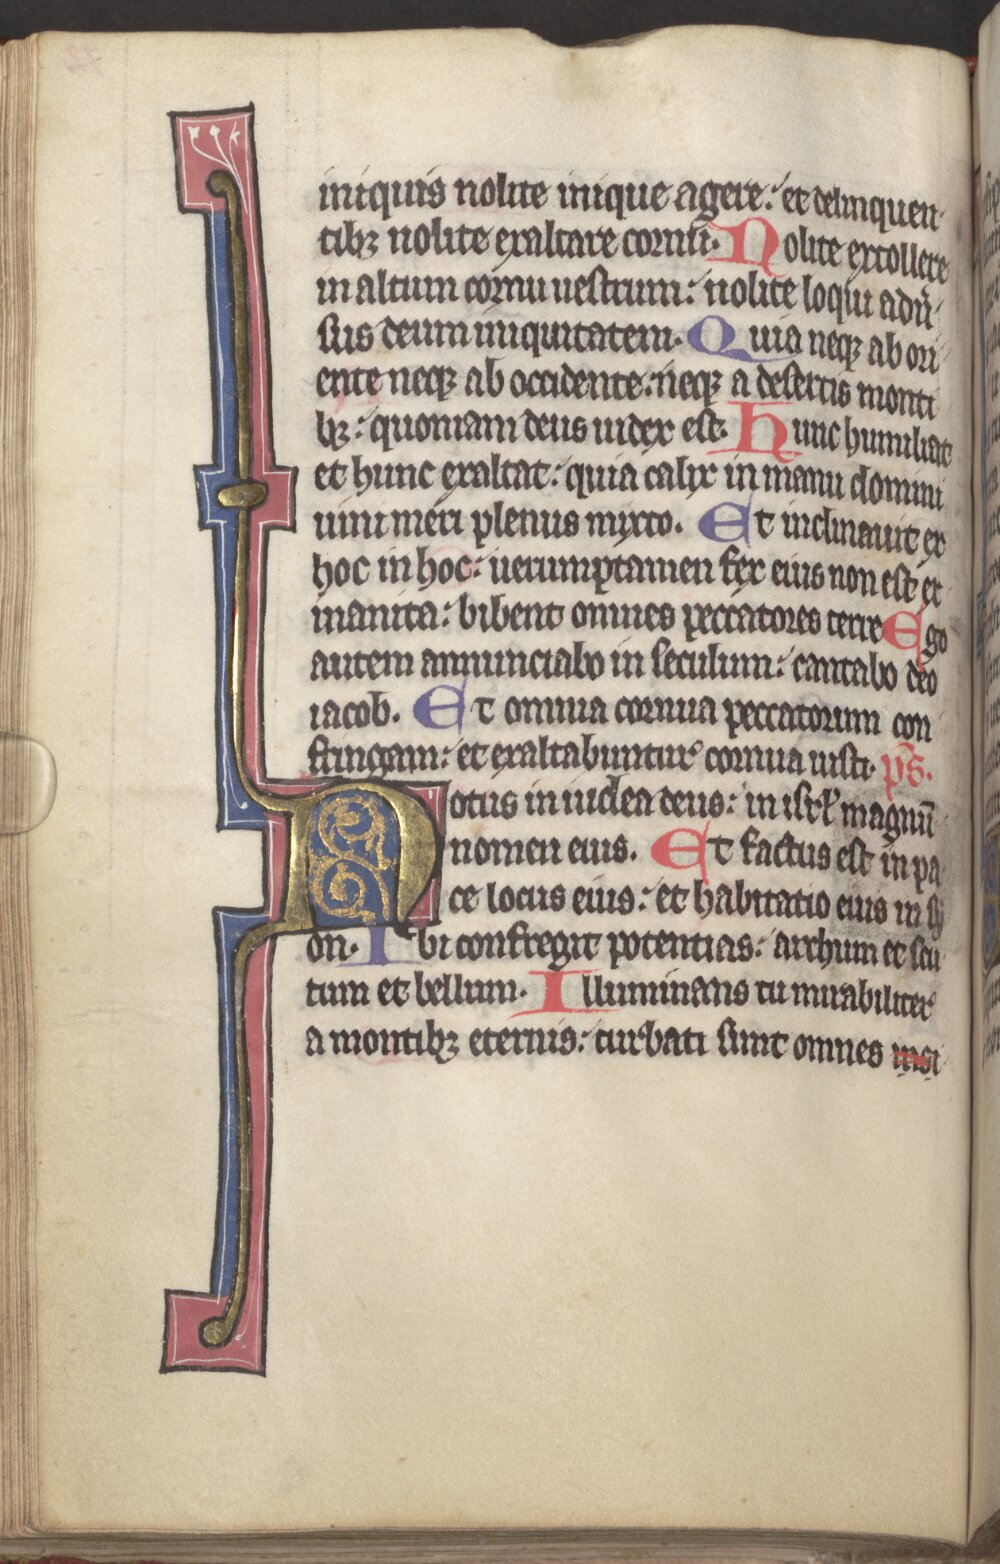 iniquis nolite inique agere: et delinquen
tibꝫ nolite exaltare cornū. Nolite extollere
in altum cornu uestrum: nolite loqui adū
sus deum iniquitatem. Quia neqꝫ ab ori
ente neqꝫ ab occidente: neqꝫ a desertis monti
bꝫ: quoniam deus iudex est. Hunc humiliat
et hunc exaltat: quia calix in manu domini
uini meri plenus mixto. Et inclinauit ex
hoc in hoc: uerumptamen fex eius non est ex
inanita: bibent omnes peccatores terre Ego
autem annunciabo in seculum: cantabo deo
iacob. Et omnia cornua peccatorum con
fringam: et exaltabuntur cornua iusti. p̄s.
Notus in iudea deus: in isrl̓ magnū
nomen eius. Et factus est in pa
ce locus eius: et habitatio eius in sy
on. Ibi confregit potentias: archum et scu
tum et bellum. Illuminans tu mirabiliter
a montibꝫ eternis: turbati sunt omnes insi